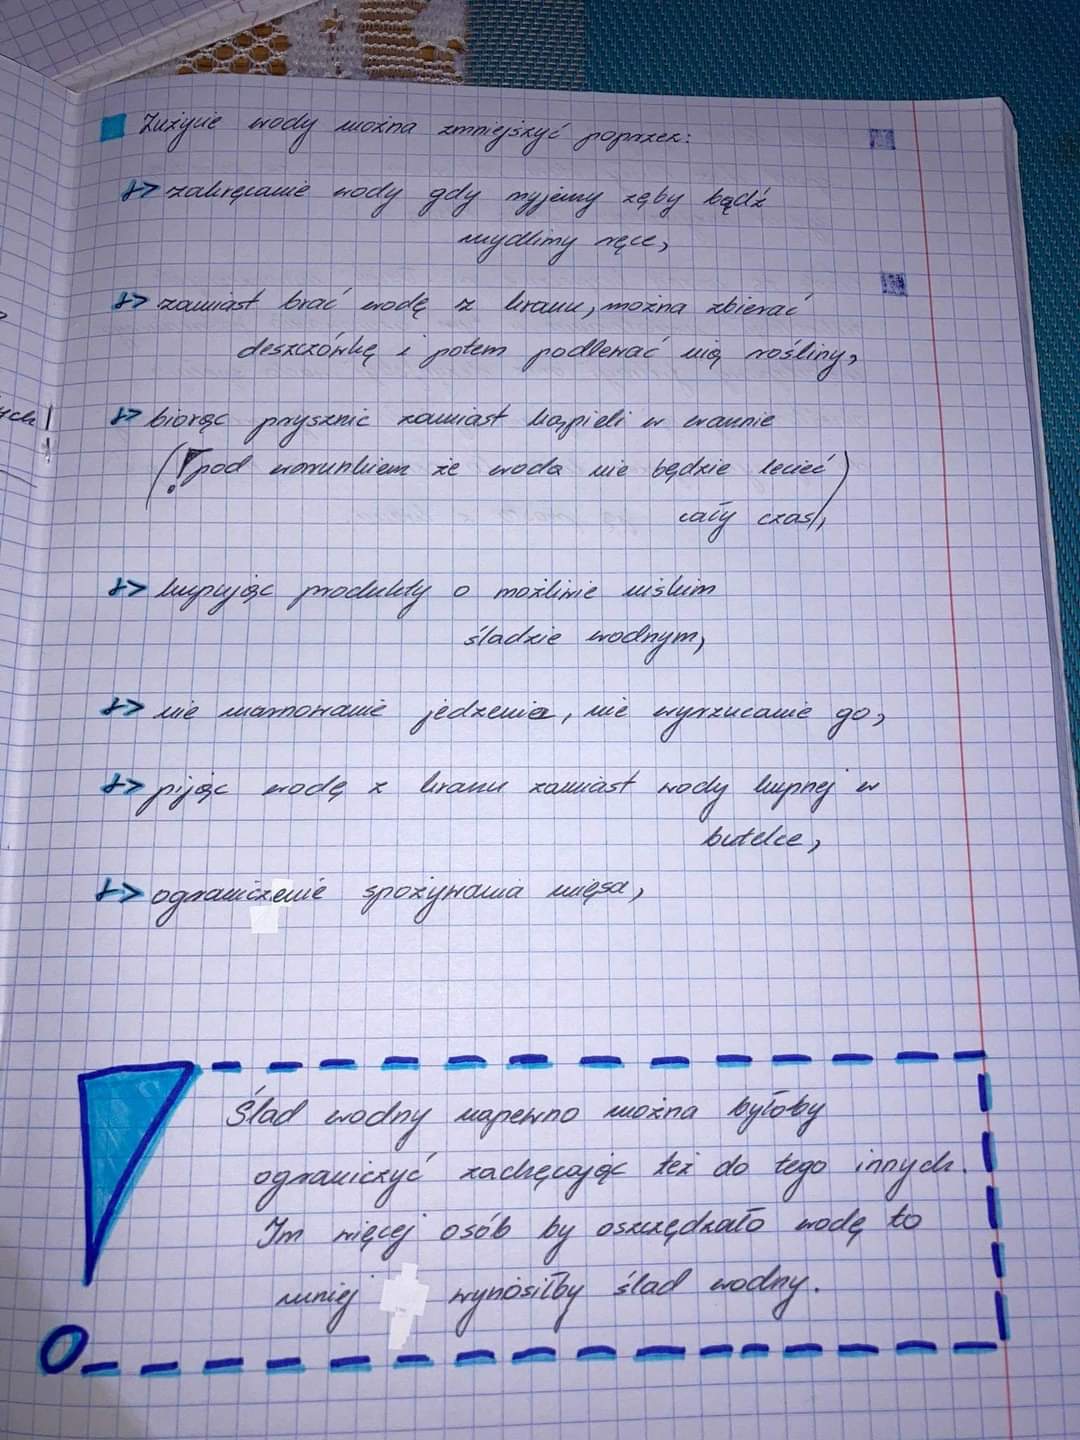 Zużycie wody można zmniejszyć poprzez:
zakręcanie wody gdy myjemy zęby bądź
mydlimy ręce,
zamiast brać wodę z kranu, można zbierać
deszczówkę i potem podlewać nią rośliny,
biorąc prysznic zamiast kąpieli w wannie
(! pod warunkiem że woda nie będzie lecieć
cały czas),
kupując produkty o możliwie niskim
śladzie wodnym,
nie marnowanie jedzenia, nie wyrzucanie go,
pijąc wodę z kranu zamiast wody kupnej w
butelce,
ograniczenie spożywania mięsa,
Ślad wodny napewno można byłoby
ograniczyć zachęcając też do tego innych.
Im więcej osób by oszczędzało wodę to
mniej wynosiłby ślad wodny.